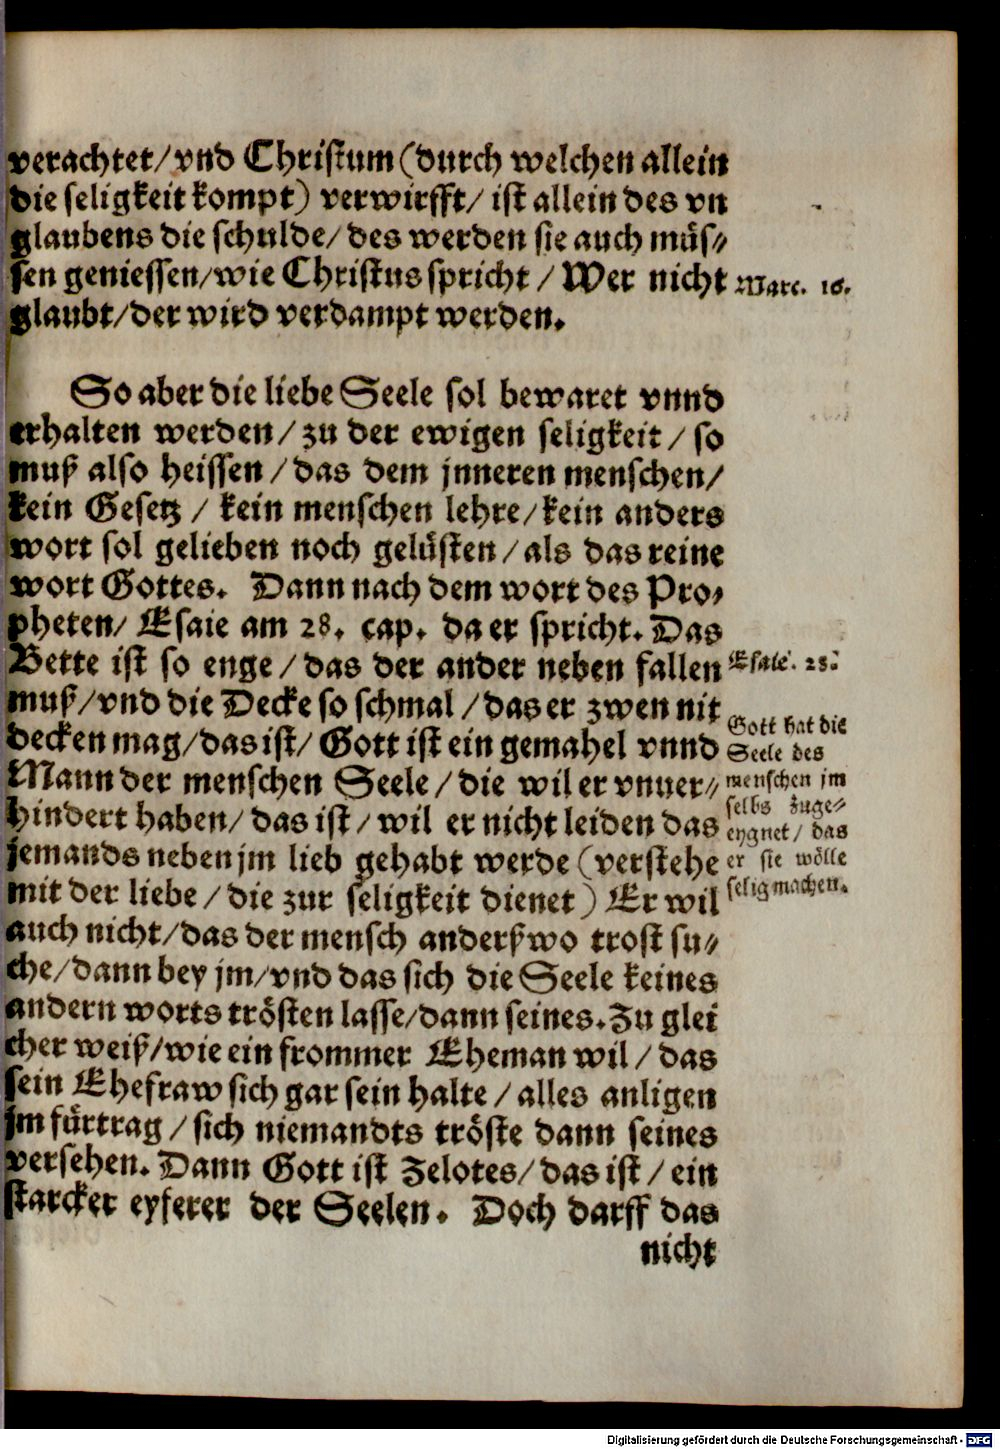 verachtet/ vnd Christum (durch welchen allein
die seligkeit kompt) verwirfft/ ist allein des vn
glaubens die schulde/ des werden sie auch müs⸗
sen geniessen/ wie Christus spricht / Wer nicht
Marc. 16.
glaubt/ der wird verdampt werden.
So aber die liebe Seele sol bewaret vnnd
erhalten werden/ zu der ewigen seligkeit / so
muß also heissen / das dem jnneren menschen/
kein Gesetz / kein menschen lehre/ kein anders
wort sol gelieben noch gelüsten / als das reine
wort Gottes. Dann nach dem wort des Pro⸗
pheten/ Esaie am 28. cap. da er spricht. Das
Bette ist so enge / das der ander neben fallen
Esaie. 28.
muß/ vnd die Decke so schmal / das er zwen nit
decken mag/ das ist/ Gott ist ein gemahel vnnd
Mann der menschen Seele / die wil er vnuer⸗
hindert haben/ das ist / wil er nicht leiden das
jemands neben jm lieb gehabt werde (verstehe
mit der liebe / die zur seligkeit dienet) Er wil
Gott hat die
Seele des
menschen jm
selbs zuge⸗
eygnet/ das
er sie wölle
selig machen.
auch nicht/ das der mensch anderßwo trost su⸗
che/ dann bey jm/ vnd das sich die Seele keines
andern worts trösten lasse/ dann seines. Zu glei
cher weiß/ wie ein frommer Eheman wil / das
sein Ehefraw sich gar sein halte / alles anligen
jm fürtrag / sich niemandts tröste dann seines
versehen. Dann Gott ist Zelotes/ das ist / ein
starcker eyferer der Seelen. Doch darff das
nicht
Digitalisierung gefördert durch die Deutsche Forschungsgemeinschaft - DFG